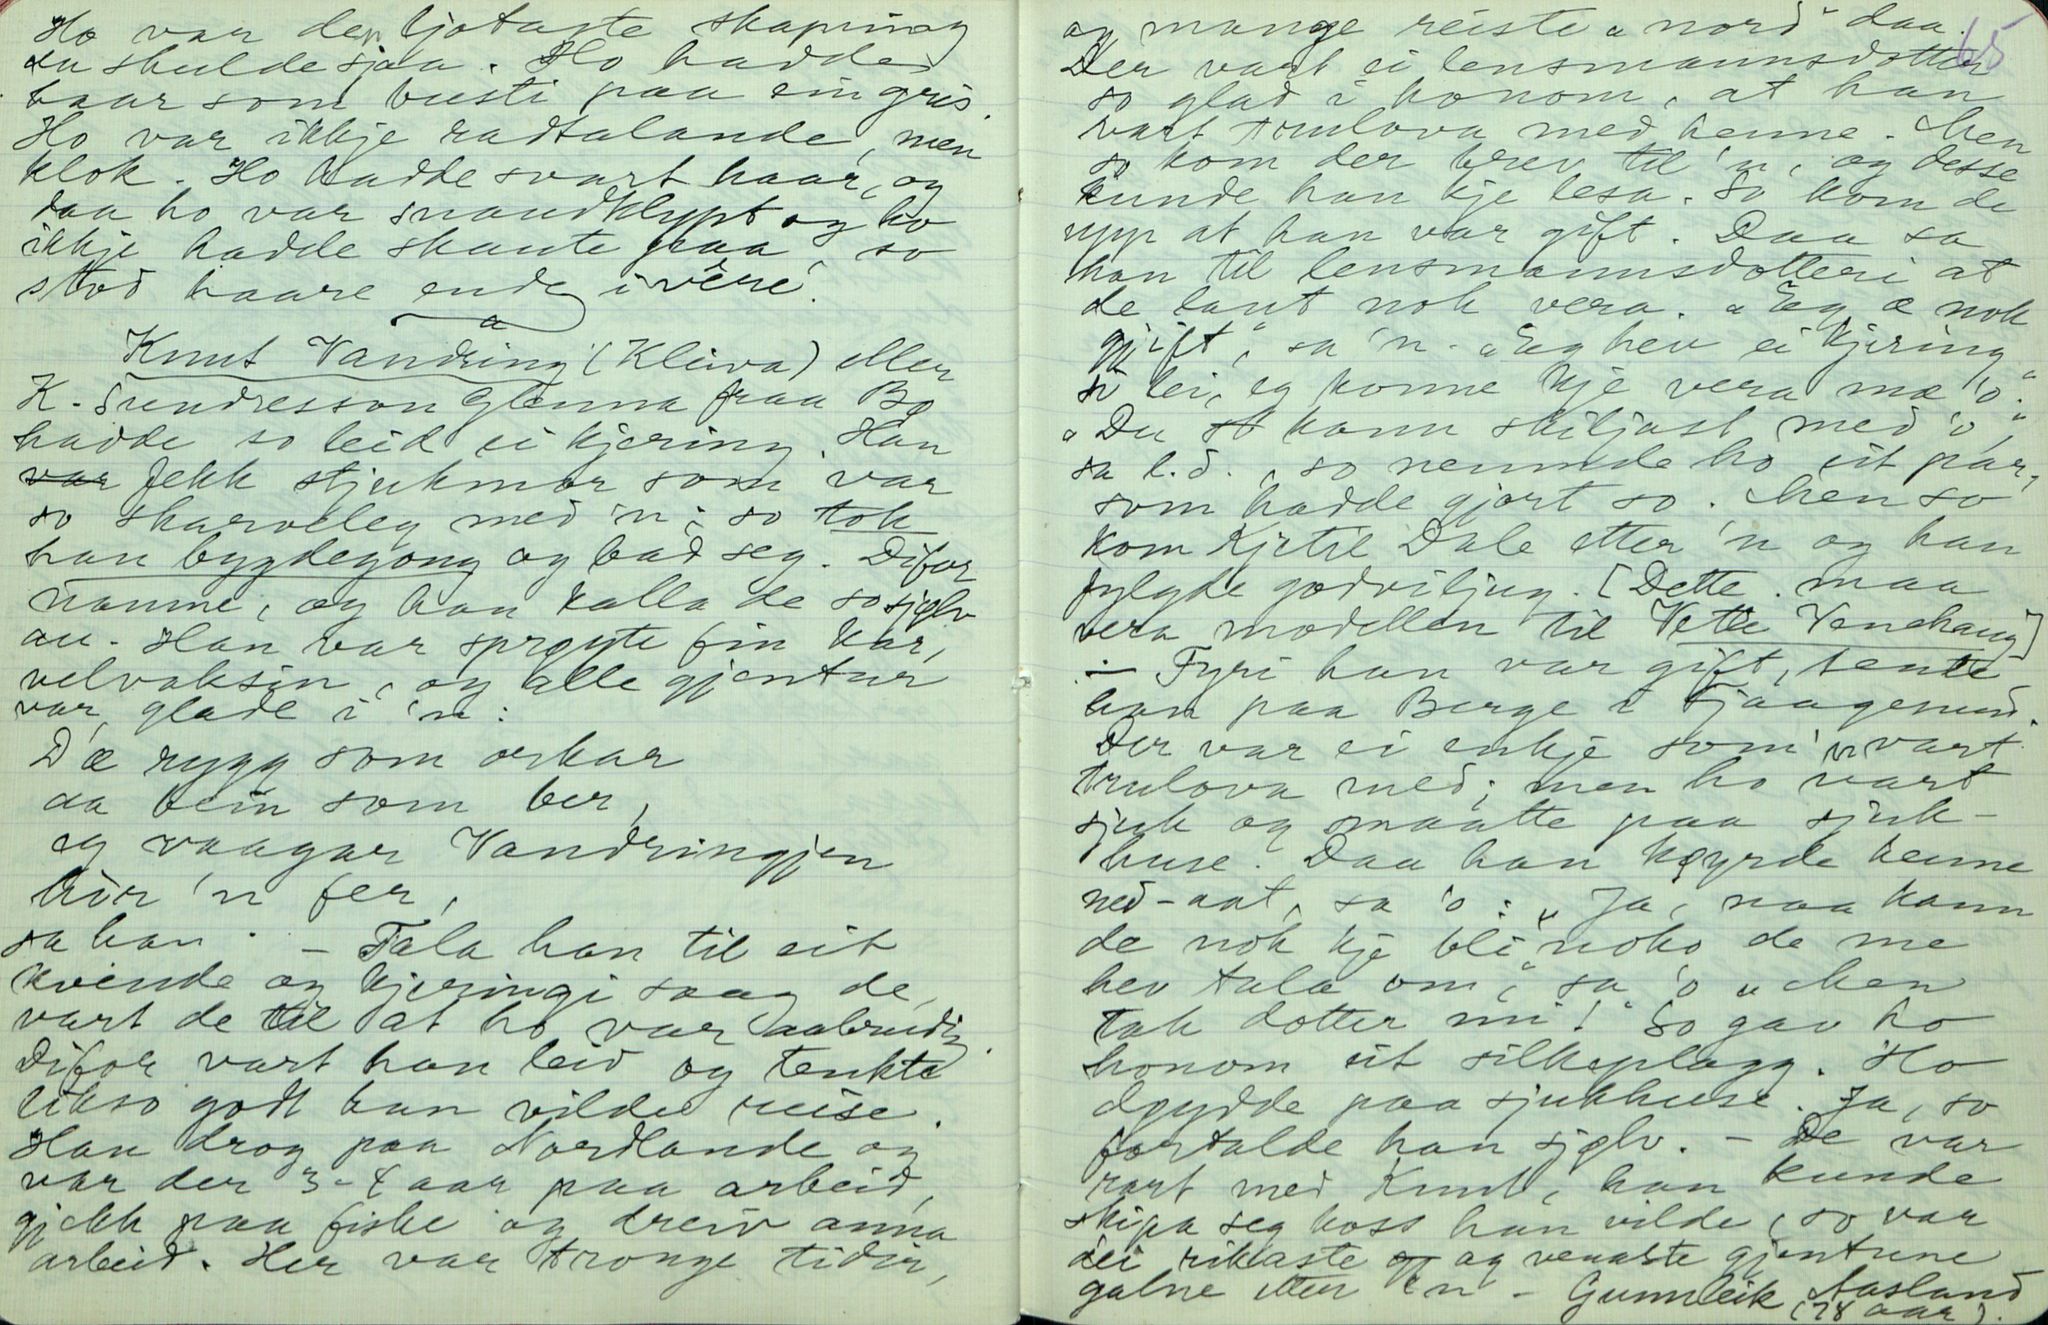 Ho var den ljotaste skapning
du skulde sjaa. Ho hadde
haar som busti paa ein gris.
Ho var ikkje radtalande, men
klok. Ho hadde svart haar, og
daa ho var snaudklypt og ho
ikkje hadde skaute paa, so
stod haare ende i være.
Knut Vandring (Kleiva) eller
K. Sundresson Glenna fraa Bø
hadde so leid ei kjering. Han
var fekk stjukmor som var
so skarveleg med 'n; so tok
han bygdegong og bad seg. Difor
namne, og han kalla de so sjølv
au. Han var sprøyte fin kar,
velvaksin, og alle gjentur
var glade i 'n:
D'æ rygg som orkar
aa bein som ber,
eg vaagar Vandringjen
kor 'n fer,
sa han. – Tala han til eit
kvende og kjeringi saag de,
vart de til at ho var aabruidig.
Difor vart han leid og tenkte
likso godt han vilde reise.
Han drog paa Nordlande og
var der 3-4 aar paa arbeid,
gjekk paa fiske og dreiv anna
arbeid. Her var tronge tidir,
65
og mange reiste "nord" daa.
Der vart ei lensmannsdotter
so glad i honom, at han
vart trulova med henne. Men
so kom der brev til 'n, og desse
kunde han kje lesa. So kom de
upp at han var gift. Daa sa
han til lensmannsdotteri at
de laut nok vera. "Eg æ nok
gjift," sa 'n. "Eg hev ei kjering
so lei, eg konne kje vera mæ 'o."
"Du kann skiljast med 'o,"
sa l.d., so nemnde ho eit par,
som hadde gjort so. Men so
kom Kjetil Dale etter 'n og han
fylgde godviljug. [Dette maa
vera modellen til Vetle Venehaug]
– Fyri han var gift, tente
han paa Berge i Tjaagesund.
Der var ei enkje som 'n vart
trulova med; men ho vart
sjuk og maatte paa sjuk-
huse. Daa han køyrde henne
ned-aat, sa 'o: "Ja, naa kann
de nok kje bli noko de me
hev tala om," sa 'o "Men
tak dotter mi!" So gav ho
honom eit silkeplagg. Ho
døydde paa sjukhuse. Ja, so
fortalde han sjølv. – De var
rart med Knut, han kunde
skipa seg koss han vilde, so var
dei rikaste og venaste gjentune
galne etter 'n – Gunnleik Aasland
(78 aar).